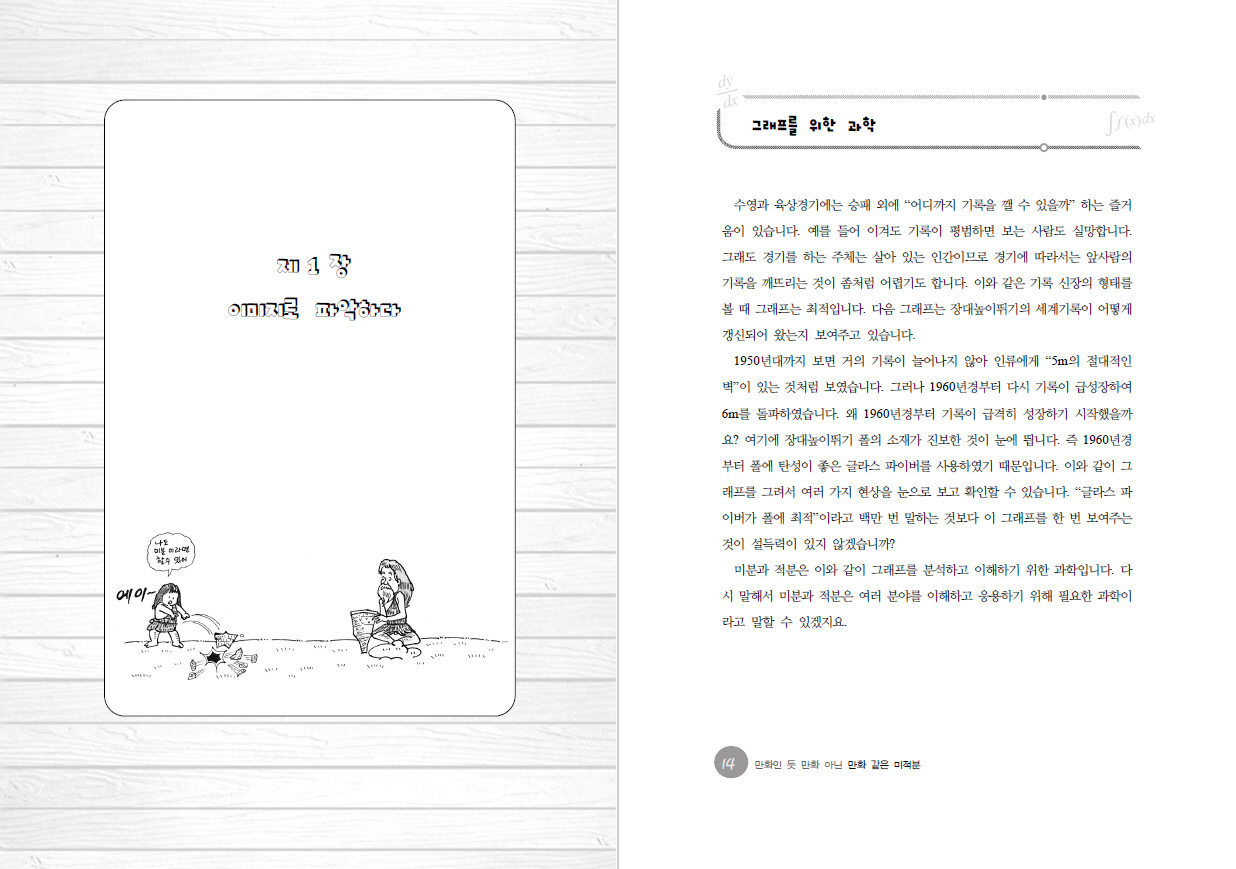 제 1 장
이미지로 파악하다
나도
미분 이라면
할 수 있어
에이~
dy
dx
그래프를 위한 과학
∫f(x)dx
수영과 육상경기에는 승패 외에 “어디까지 기록을 깰 수 있을까” 하는 즐거
움이 있습니다. 예를 들어 이겨도 기록이 평범하면 보는 사람도 실망합니다.
그래도 경기를 하는 주체는 살아 있는 인간이므로 경기에 따라서는 앞사람의
기록을 깨뜨리는 것이 좀처럼 어렵기도 합니다. 이와 같은 기록 신장의 형태를
볼 때 그래프는 최적입니다. 다음 그래프는 장대높이뛰기의 세계기록이 어떻게
갱신되어 왔는지 보여주고 있습니다.
1950년대까지 보면 거의 기록이 늘어나지 않아 인류에게 “5m의 절대적인
벽”이 있는 것처럼 보였습니다. 그러나 1960년경부터 다시 기록이 급성장하여
6m를 돌파하였습니다. 왜 1960년경부터 기록이 급격히 성장하기 시작했을까
요? 여기에 장대높이뛰기 폴의 소재가 진보한 것이 눈에 띕니다. 즉 1960년경
부터 폴에 탄성이 좋은 글라스 파이버를 사용하였기 때문입니다. 이와 같이 그
래프를 그려서 여러 가지 현상을 눈으로 보고 확인할 수 있습니다. “글라스 파
이버가 폴에 최적”이라고 백만 번 말하는 것보다 이 그래프를 한 번 보여주는
것이 설득력이 있지 않겠습니까?
미분과 적분은 이와 같이 그래프를 분석하고 이해하기 위한 과학입니다. 다
시 말해서 미분과 적분은 여러 분야를 이해하고 응용하기 위해 필요한 과학이
라고 말할 수 있겠지요.
14 만화인 듯 만화 아닌 만화 같은 미적분